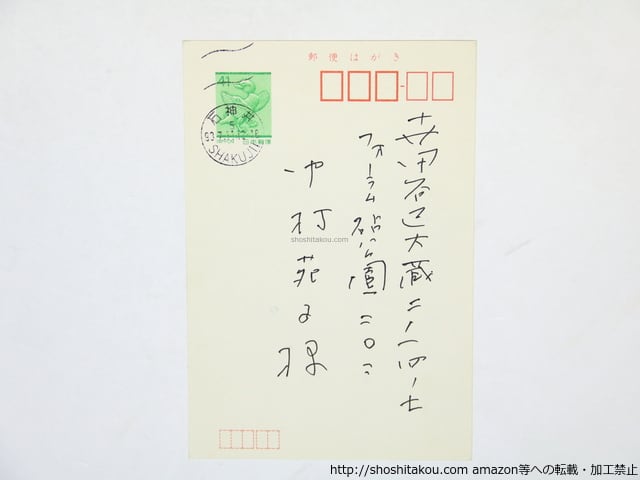 郵便はがき
41
日本郵便
石神井
SHAKUJII
世田谷区大蔵二ノ一四ノ七
フォーラム砧公園二〇二
中村苑子様
shoshitakou.com
http://shoshitakou.com amazon等への転載・加工禁止